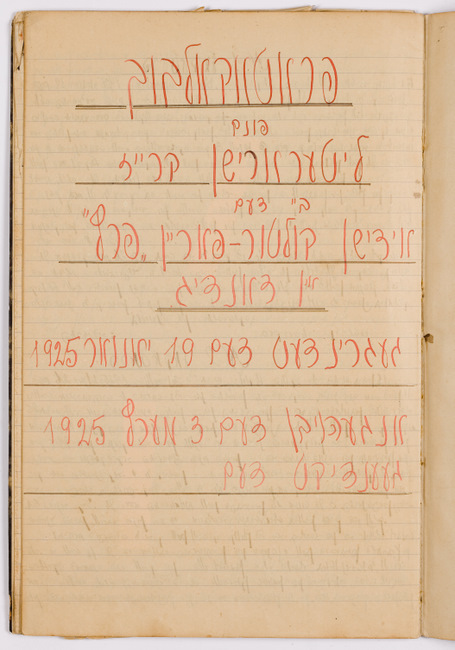 פראטאקאלבוך
פונם
ליטערארישן קרייז
ביי דעם
אידישן קולטור-פאריין „פרץ"
אין דאנציג
געגרינדעט דעם 19 יאנואר 1925
אנגעהויבן דעם 3 מערץ 1925
געענדיקט דעם